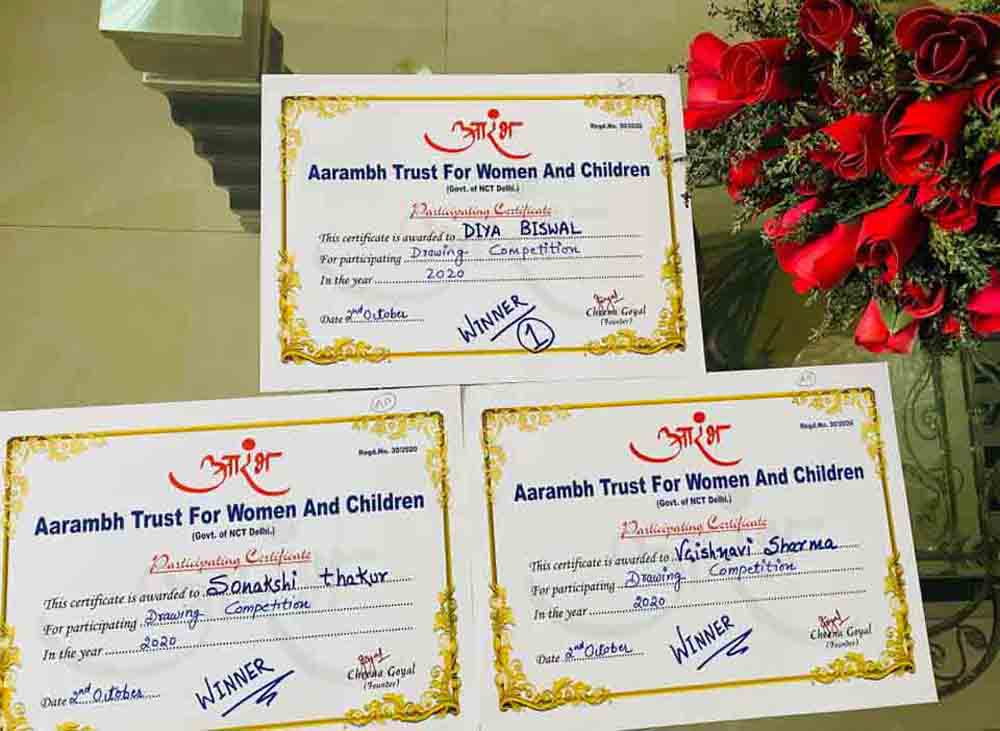 आरंभ
Regd.No. 30/2020
Aarambh Trust For Women And Children
(Govt. of NCT Delhi.)
Participating Certificate
This certificate is awarded to DIYA BISWAL
For participating Drawing Competition
In the year 2020
Date 2nd October
WINNER
1
Goyal
Cheena Goyal
(Founder)
आरंभ
Regd.No. 30/2020
Aarambh Trust For Women And Children
(Govt. of NCT Delhi.)
Participating Certificate
This certificate is awarded to Sonakshi thakur
For participating Drawing Competition
In the year 2020
Date 2nd October
WINNER
Goyal
Cheena Goyal
(Founder)
आरंभ
Regd.No. 30/2020
Aarambh Trust For Women And Children
(Govt. of NCT Delhi.)
Participating Certificate
This certificate is awarded to Vaishnavi Sharma
For participating Drawing Competition
In the year 2020
Date 2nd October
WINNER
Goyal
Cheena Goyal
(Founder)